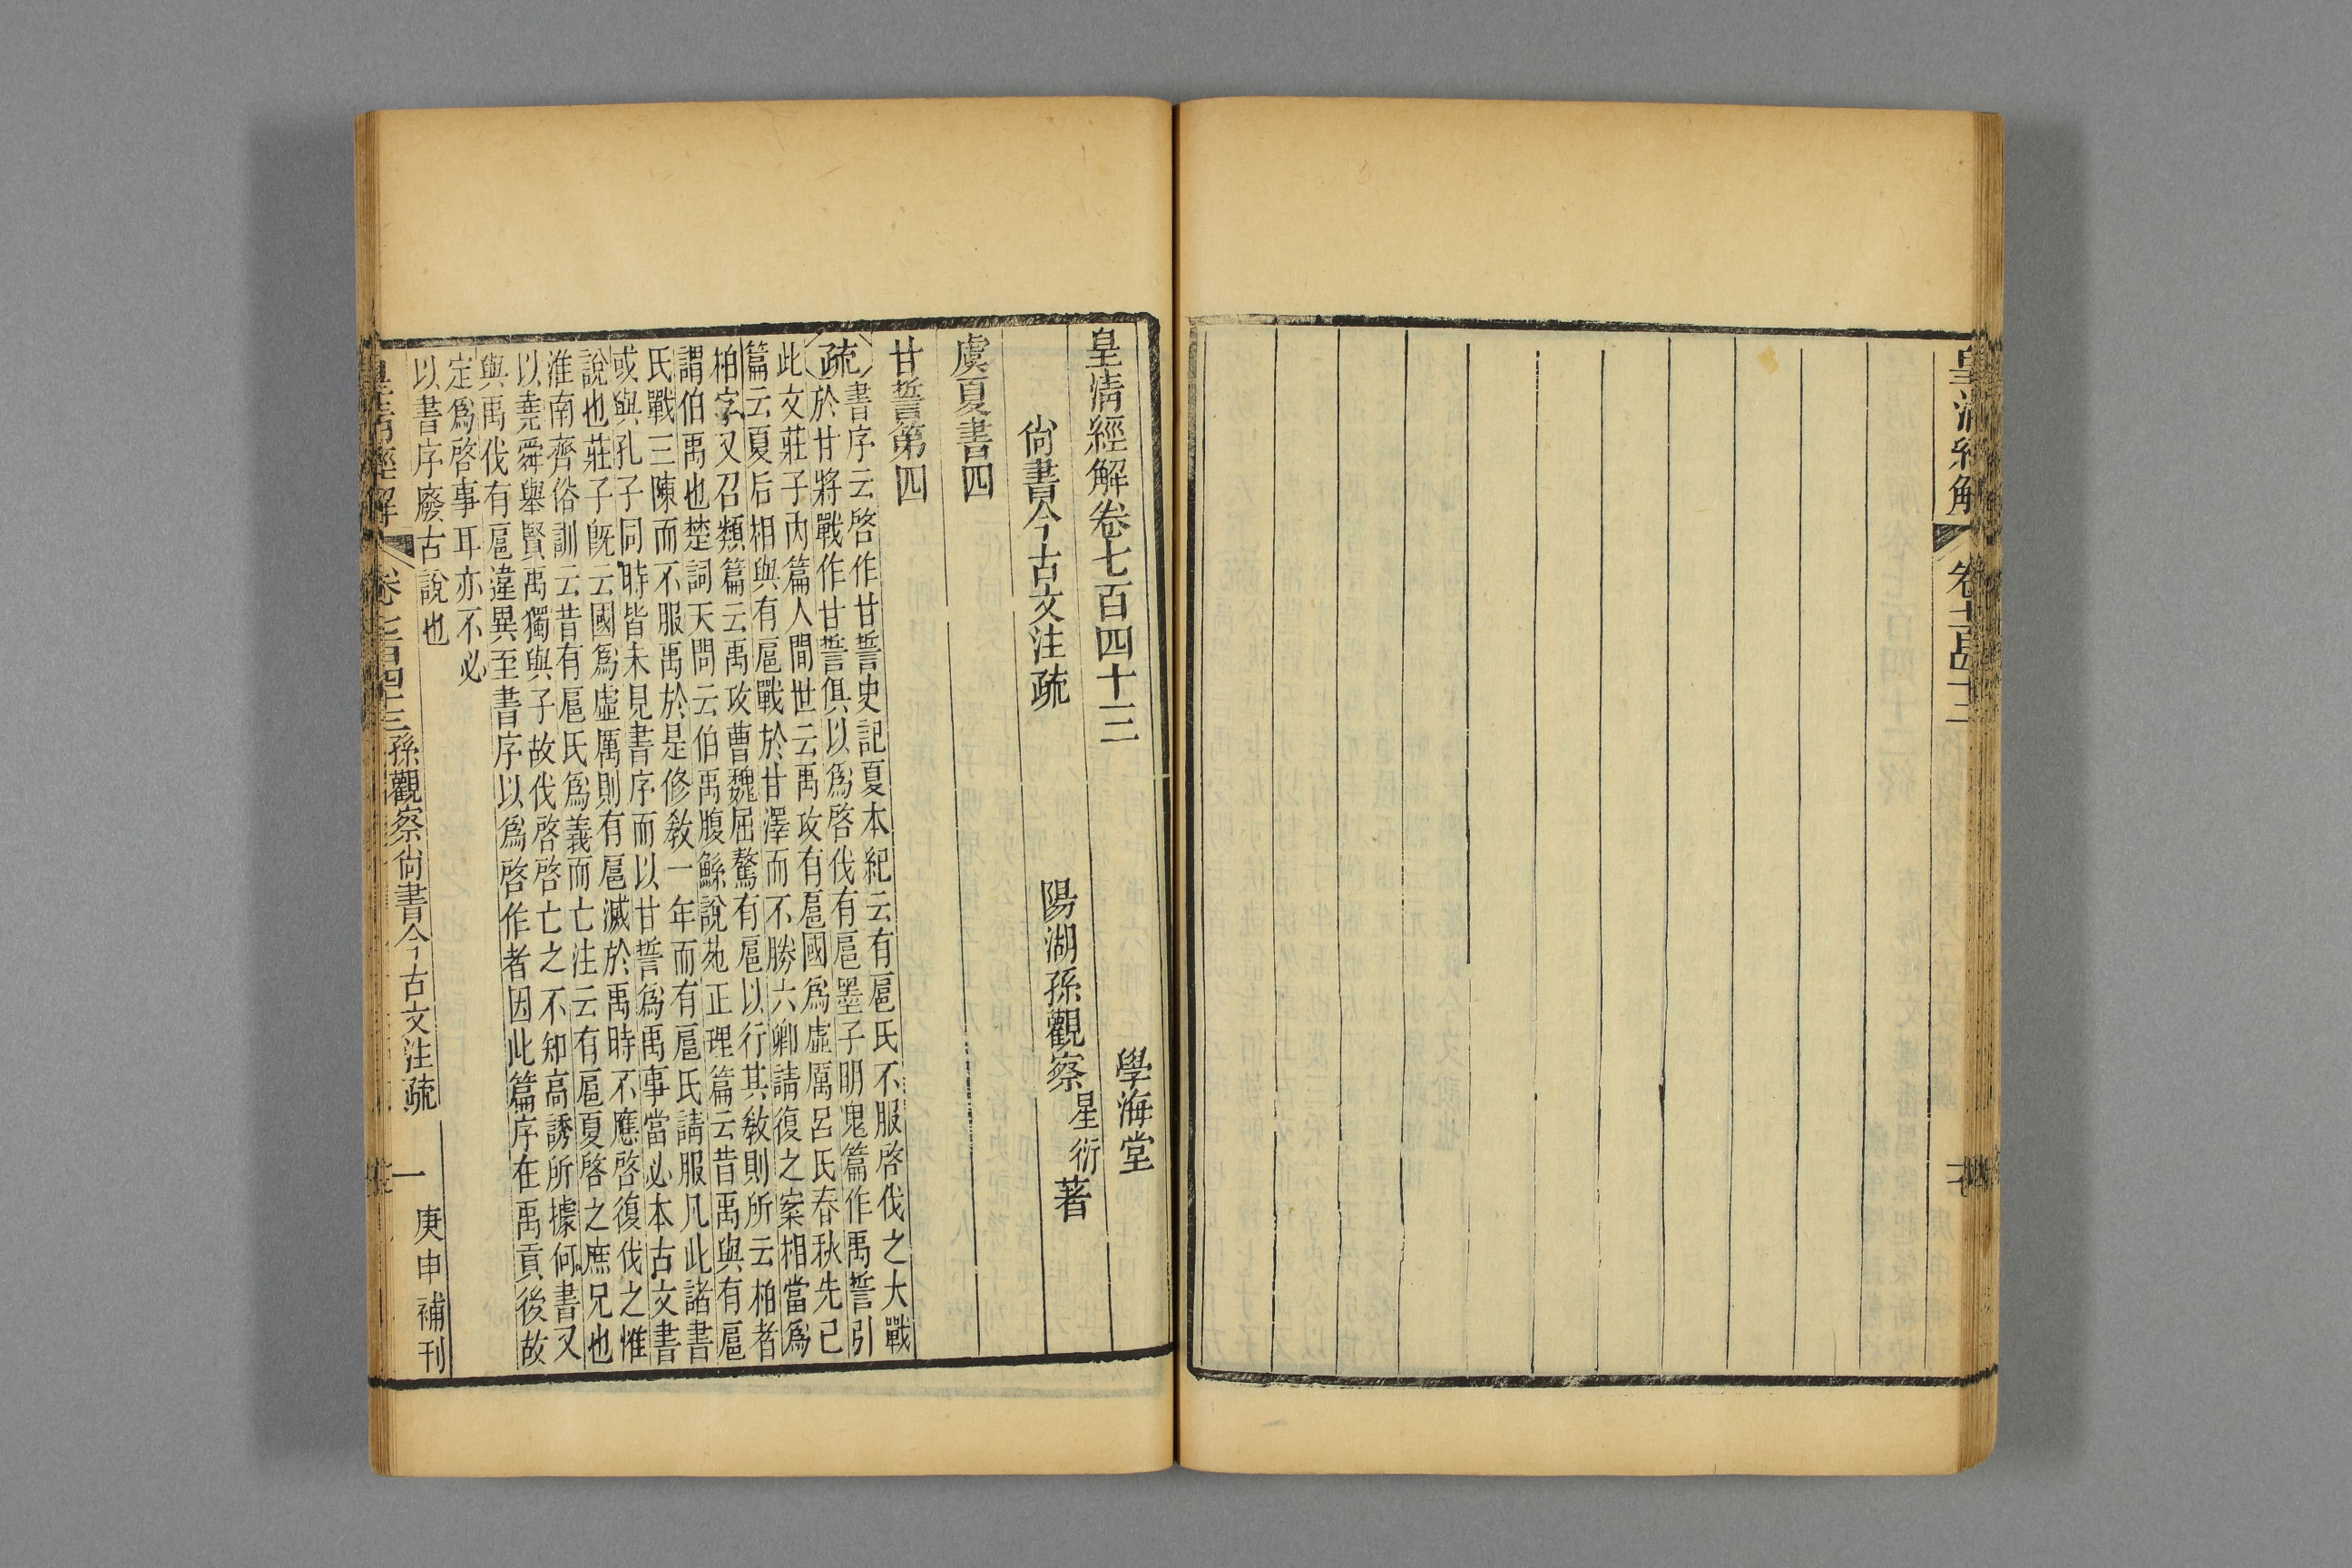 皇清經解 卷七百四十二
皇清經解卷七百四十三 學海堂
尙書今古文注疏 陽湖孫觀察星衍著
虞夏書四
甘誓第四
疏 書序云啓作甘誓史記夏本紀云有扈氏不服啓伐之大戰
於甘將戰作甘誓俱以爲啓伐有扈墨子明鬼篇作禹誓引
此文莊子內篇人間世云禹攻有扈國爲虛厲呂氏春秋先己
篇云夏后相與有扈戰於甘澤而不勝六卿請復之案相當爲
柏字又召類篇云禹攻曹魏屈驁有扈以行其敎則所云柏者
謂伯禹也楚詞天問云伯禹腹鯀說苑正理篇云昔禹與有扈
氏戰三陳而不服禹於是修敎一年而有扈氏請服凡此諸書
或與孔子同時皆未見書序而以甘誓爲禹事當必本古文書
說也莊子旣云國爲虛厲則有扈滅於禹時不應啓復伐之惟
淮南齊俗訓云昔有扈氏爲義而亡注云有扈夏啓之庶兄也
以堯舜舉賢禹獨與子故伐啓啓亡之不知高誘所據何書又
與禹伐有扈違異至書序以爲啓作者因此篇序在禹貢後故
定爲啓事耳亦不必
以書序廢古說也
皇清經解 卷七百四十三 孫觀察尙書今古文注疏 一 庚申補刊